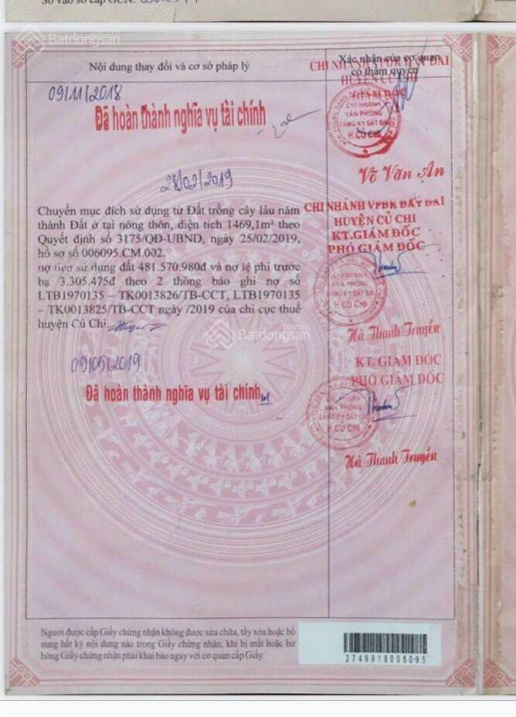 Số vào sổ cấp GCN:
Batdongsan
Nội dung thay đổi và cơ sở pháp lý
Xác nhận của cơ quan
có thẩm quyền
CHI NHÁNH VPĐK ĐẤT ĐAI
HUYỆN CỦ CHI
GIÁM ĐỐC
09/11/2018
Đã hoàn thành nghĩa vụ tài chính
CHI NHÁNH
VĂN PHÒNG
ĐĂNG KÝ ĐẤT ĐAI
H. CỦ CHI
Võ Văn An
28/02/2019
Chuyển mục đích sử dụng từ Đất trồng cây lâu năm
thành Đất ở tại nông thôn, diện tích 1469,1m² theo
Quyết định số 3175/QĐ-UBND, ngày 25/02/2019,
hồ sơ số 006095.CM.002.
nợ tiền sử dụng đất 481.570.980đ và nợ lệ phí trước
bạ 3.305.475đ theo 2 thông báo ghi nợ số
LTB1970135 – TK0013826/TB-CCT, LTB1970135
– TK0013825/TB-CCT ngày /2019 của chi cục thuế
huyện Củ Chi.
CHI NHÁNH VPĐK ĐẤT ĐAI
HUYỆN CỦ CHI
KT.GIÁM ĐỐC
PHÓ GIÁM ĐỐC
Hà Thanh Truyền
Batdongsan
09/05/2019
Đã hoàn thành nghĩa vụ tài chính
KT.GIÁM ĐỐC
PHÓ GIÁM ĐỐC
H. CỦ CHI
Hà Thanh Truyền
Người được cấp Giấy chứng nhận không được sửa chữa, tẩy xóa hoặc bổ
sung bất kỳ nội dung nào trong Giấy chứng nhận; khi bị mất hoặc hư
hỏng Giấy chứng nhận phải khai báo ngay với cơ quan cấp Giấy.
2749918006095